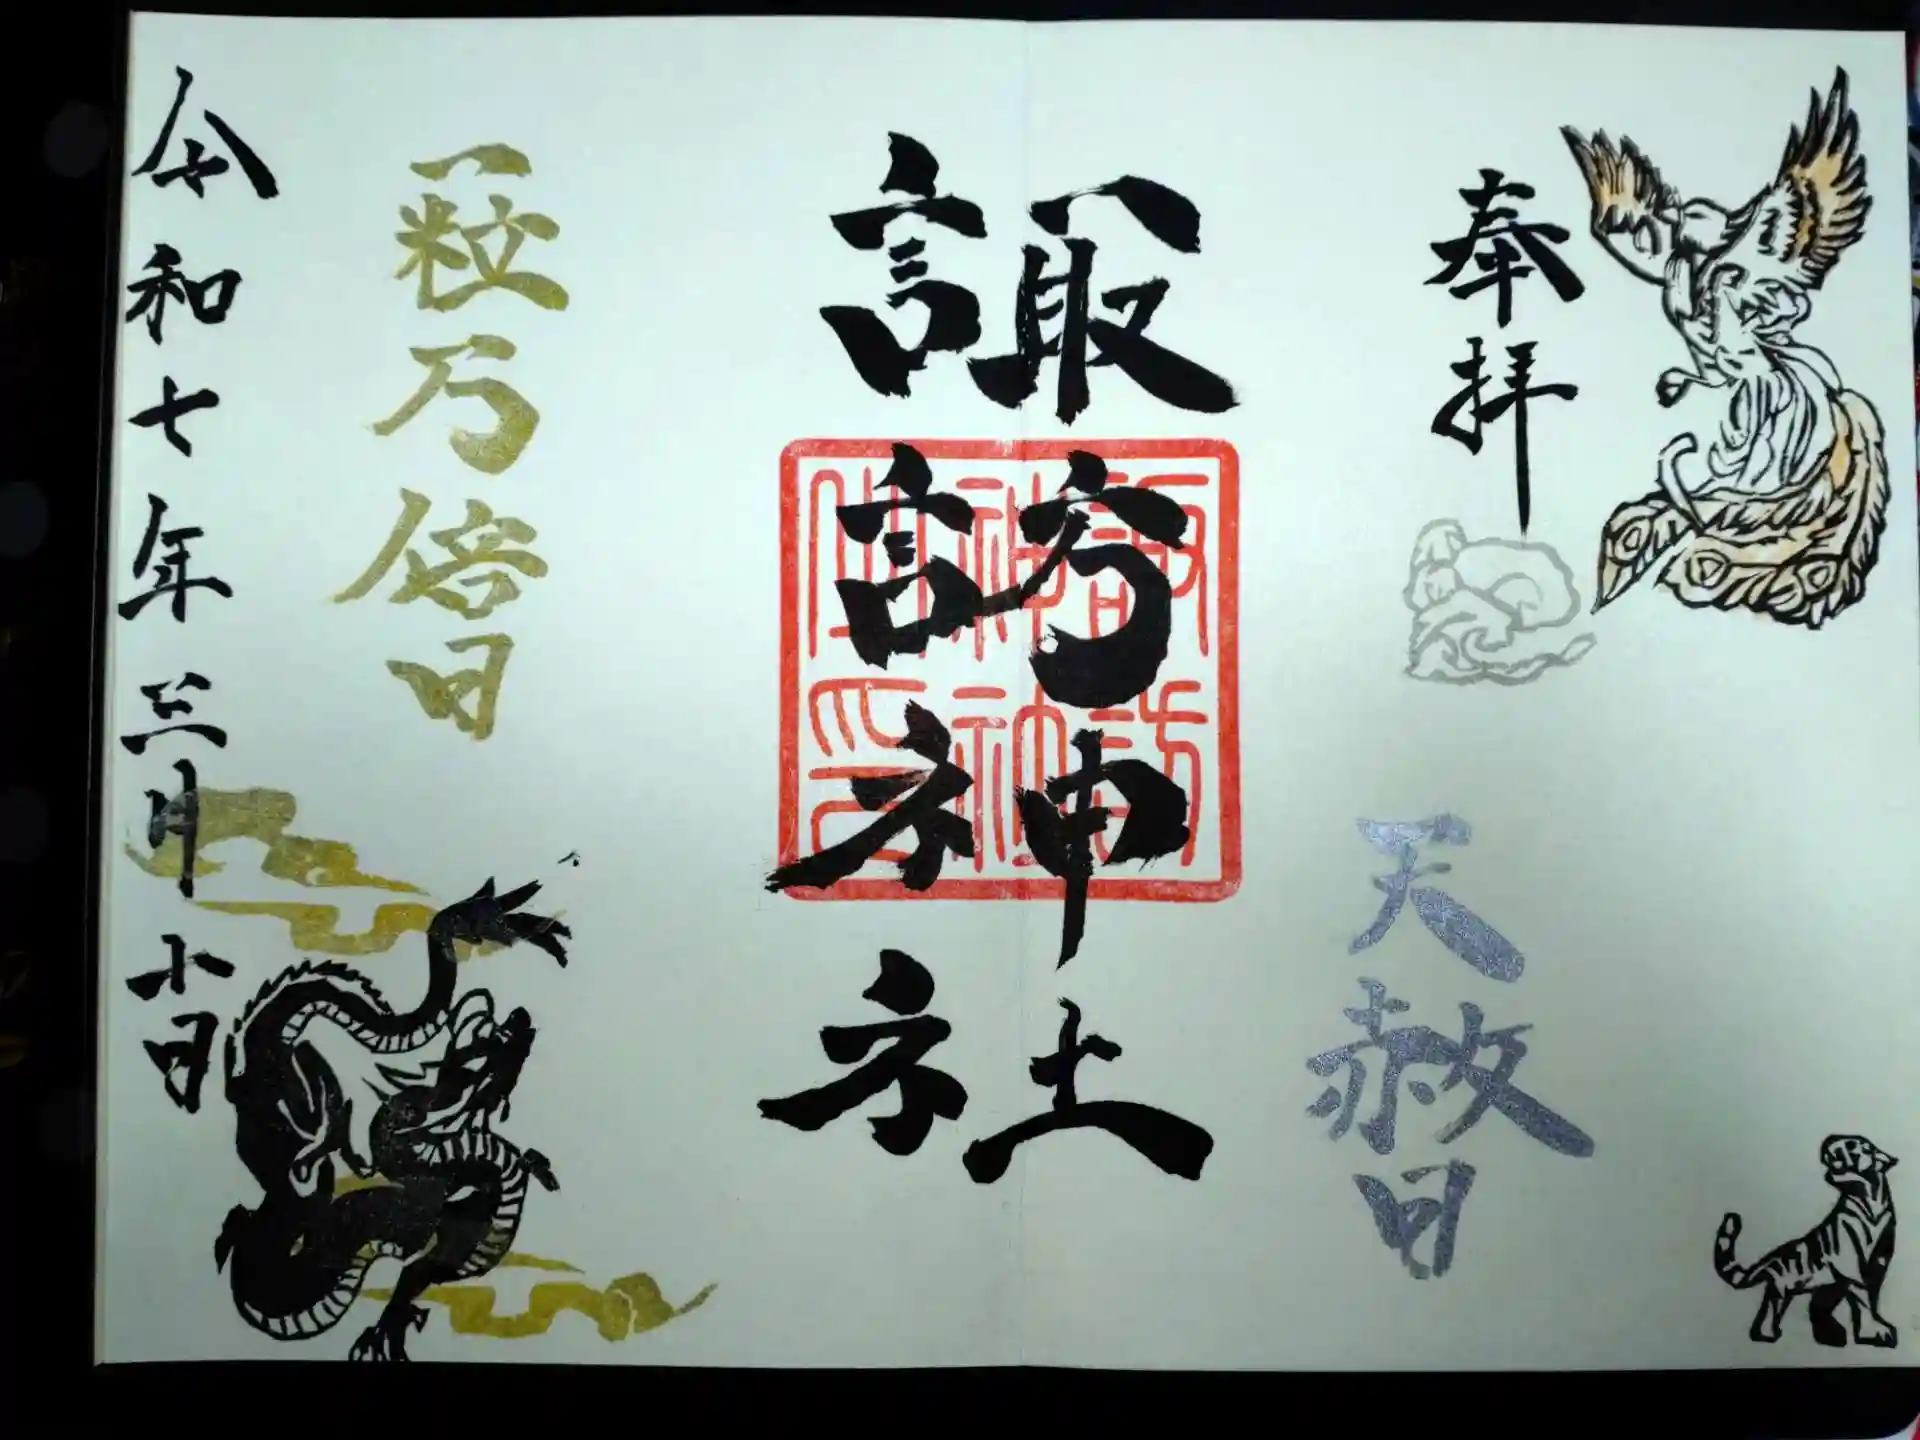 奉拝
天赦日
諏訪神社
諏訪
神社
印
一粒万倍日
令和七年三月十日